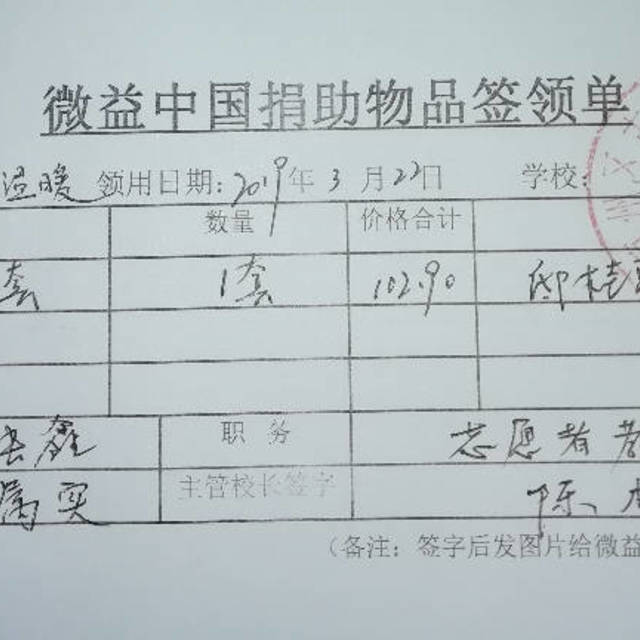 微益中国捐助物品签领单
温暖 领用日期:2019年3月22日 学校:
数量 价格合计
套 1套 102.90 邱桂
鑫 职务 志愿者
属实 主管校长签字 陈
(备注: 签字后发图片给微益